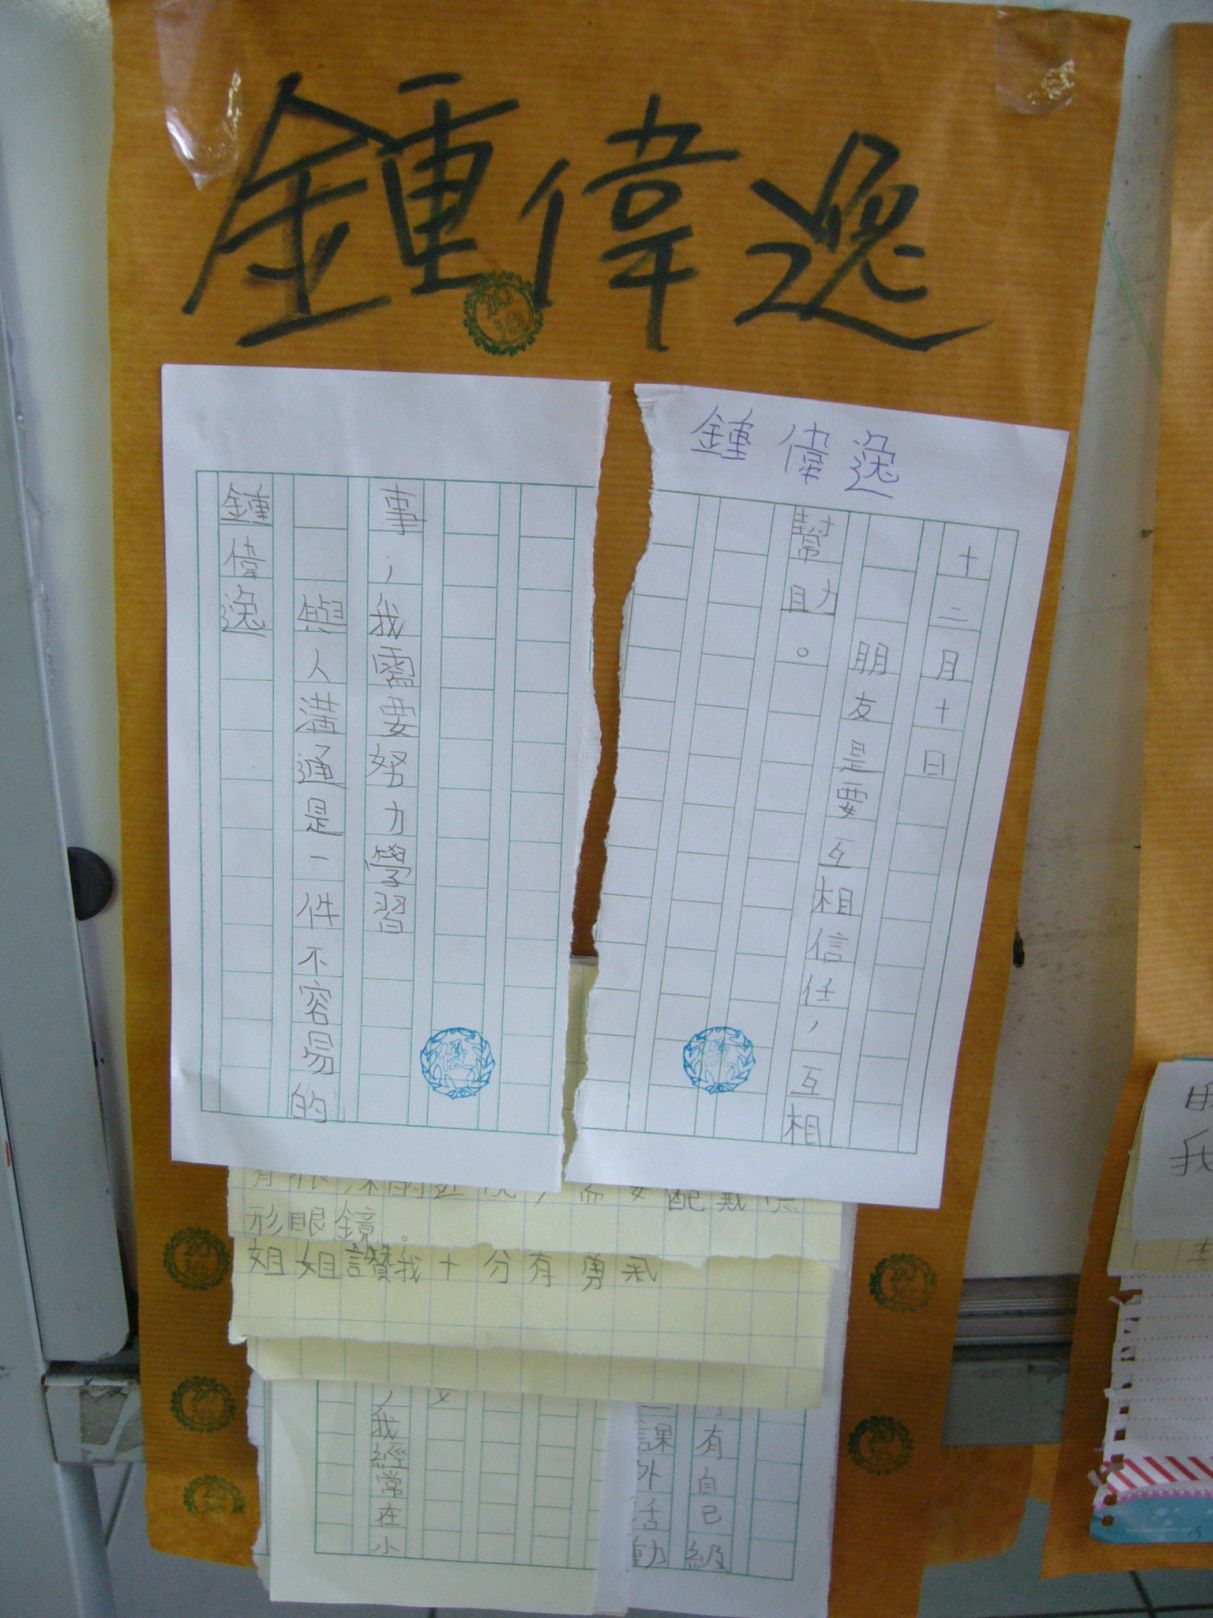 鍾偉逸
鍾偉逸
十二月十日
朋友是要互相信任，互相
幫助。
鍾偉逸
與人溝通是一件不容易的
事，我需要努力學習
配戴隱
形眼鏡。
姐姐讚我十分有勇氣
有自己級
課外活動
，我經常在小
我